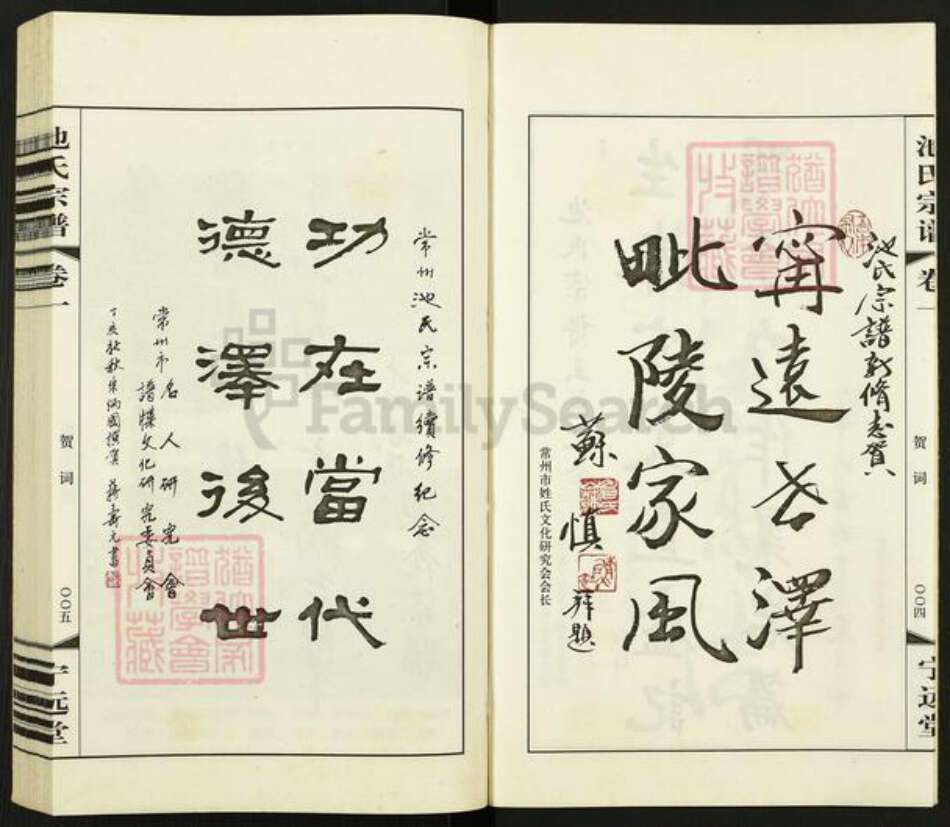 池氏宗谱
卷一
贺词
〇〇四
宁远堂
池氏宗譜新脩志贺
甯遠世澤
毗陵家風
蘇慎
拜題
常州市姓氏文化研究会会长
常州池氏宗谱續修纪念
功在當代
德澤後世
常州市名人研究會
譜牒文化研究委員會
丁亥秋
蔣壽元書
池氏宗谱
卷一
贺词
〇〇五
宁远堂
FamilySearch